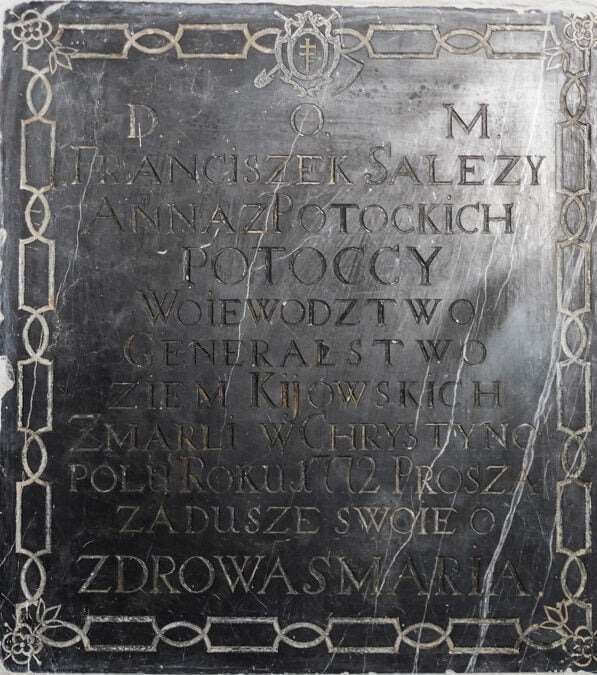 D. O. M.
FRANCISZEK SALEZY
ANNA Z POTOCKICH
POTOCCY
WOIEWODZTWO
GENERAŁSTWO
ZIEM KIJOWSKICH
ZMARLI W CHRYSTYNO
POLU ROKU 1772 PROSZĄ
ZA DUSZE SWOIE O
ZDROWAS MARIA